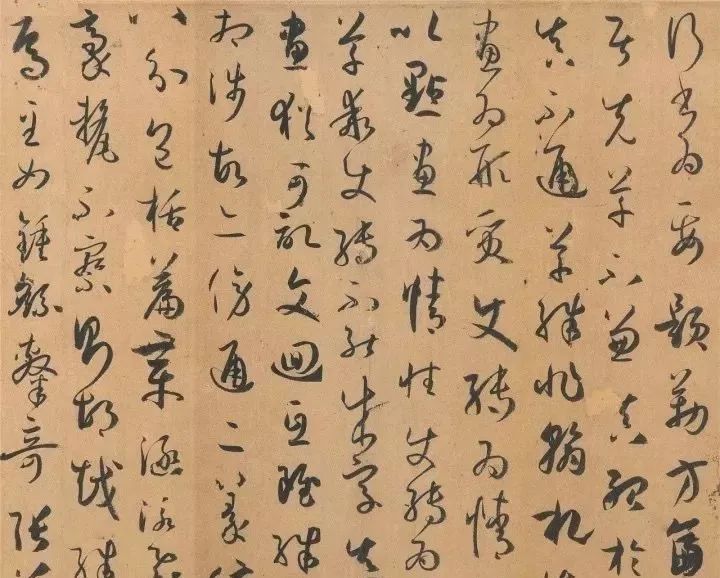 行書為要題勒方畐
居先草不兼真殆於
真不通草殊非翰札
畫為形質使轉為情
以點畫為情性使轉為
草乖使轉不能成字真
畫猶可記文迴互雖殊
相涉故亦傍通二篆俯
八分包括篇章涵泳飛
豪氂不察則胡越殊
焉至如鍾繇隸奇張